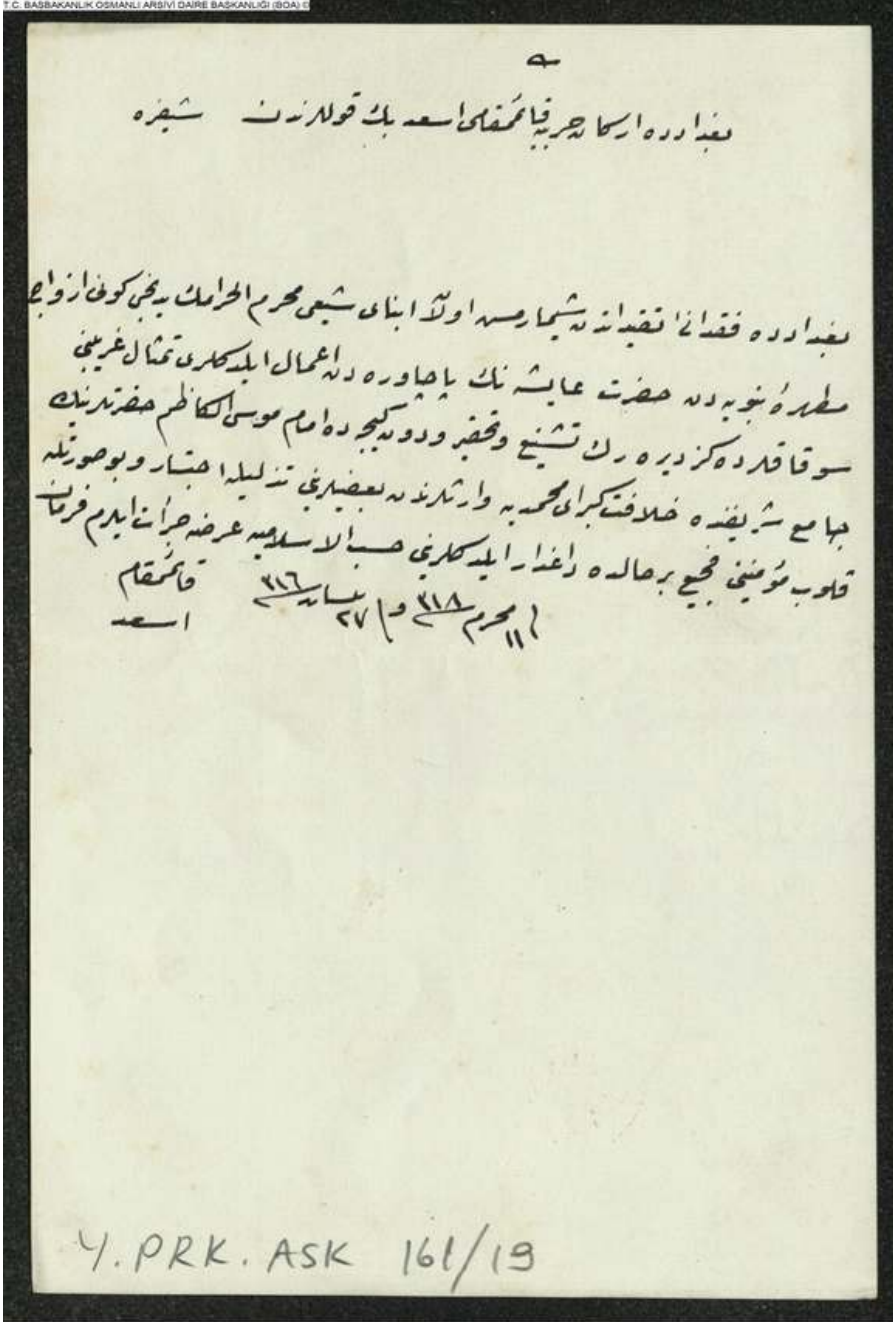 T.C. BAŞBAKANLIK OSMANLI ARŞİVİ DAİRE BAŞKANLIĞI (BOA) ©
بغدادده اركان حربيه قائممقامی اسعد بك قوللرندن شيفره
بغدادده فقدان تقيداتدن شيمارمش اولان ابنای شيعی محرم الحرامك يدنجی كونی ازواج
مطهرۀ نبويه دن حضرت عايشه نك پاچاوره دن اعمال ايلدكلری تمثال غريبنی
سوقاقلرده كزديره رك تشنيع وتحقير ودون كيجه ده امام موسی الكاظم حضرتلرينك
جامع شريفنده خلافت كبرای محمديه وارثلرندن بعضيلرينی تذليله اجتسار وبوصورتله
قلوب مؤمنينی فجيع برحالده داغدار ايلدكلرينی حسب الاسلاميه عرضه جرأت ايلرم فرمان
فی ١١ محرم ٣١٨ و فی ٢٧ نيسان ٣١٦ قائممقام
اسعد
Y. PRK. ASK 161/19